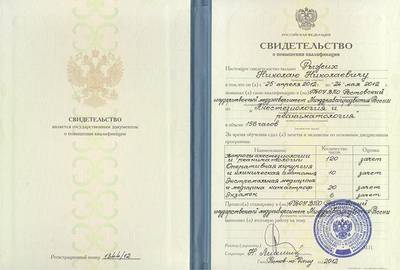 СВИДЕТЕЛЬСТВО
является государственным документом
о повышении квалификации
Регистрационный номер 1344/12
РОССИЙСКАЯ ФЕДЕРАЦИЯ
СВИДЕТЕЛЬСТВО
о повышении квалификации
Настоящее свидетельство выдано Рыжих
Николаю Николаевичу
в том, что он(а) с "25" апреля 2012 г. по "24" мая 2012 г.
повысил(а) свою квалификацию в (на) ГБОУ ВПО Ростовский
государственный медуниверситет Минздравсоцразвития России
по Анестезиология и
реаниматология
в объёме 156 часов
За время обучения сдал(а) зачеты и экзамены по основным дисциплинам
программы:
Наименование Количество часов Оценка
Вопросы анестезиологии
и реаниматологии 120 зачет
Оперативная хирургия
и клиническая анатомия 10 зачет
Экстремальная медицина
и медицина катастроф 20 зачет
Экзамен 6 зачет
Прошел(а) стажировку в (на) ГБОУ ВПО Ростовский
государственный медуниверситет
Ректор (директор)
Секретарь
Город Ростов-на-Дону год 2012